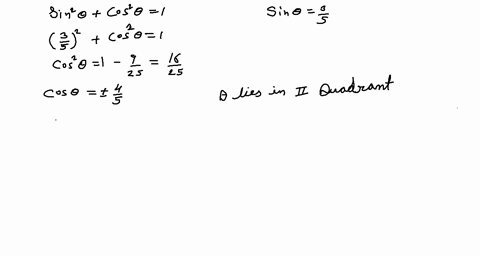 Sin²θ + Cos²θ = 1
Sinθ = 3/5
(3/5)² + Cos²θ = 1
Cos²θ = 1 - 9/25 = 16/25
Cosθ = ± 4/5
θ lies in II Quadrant